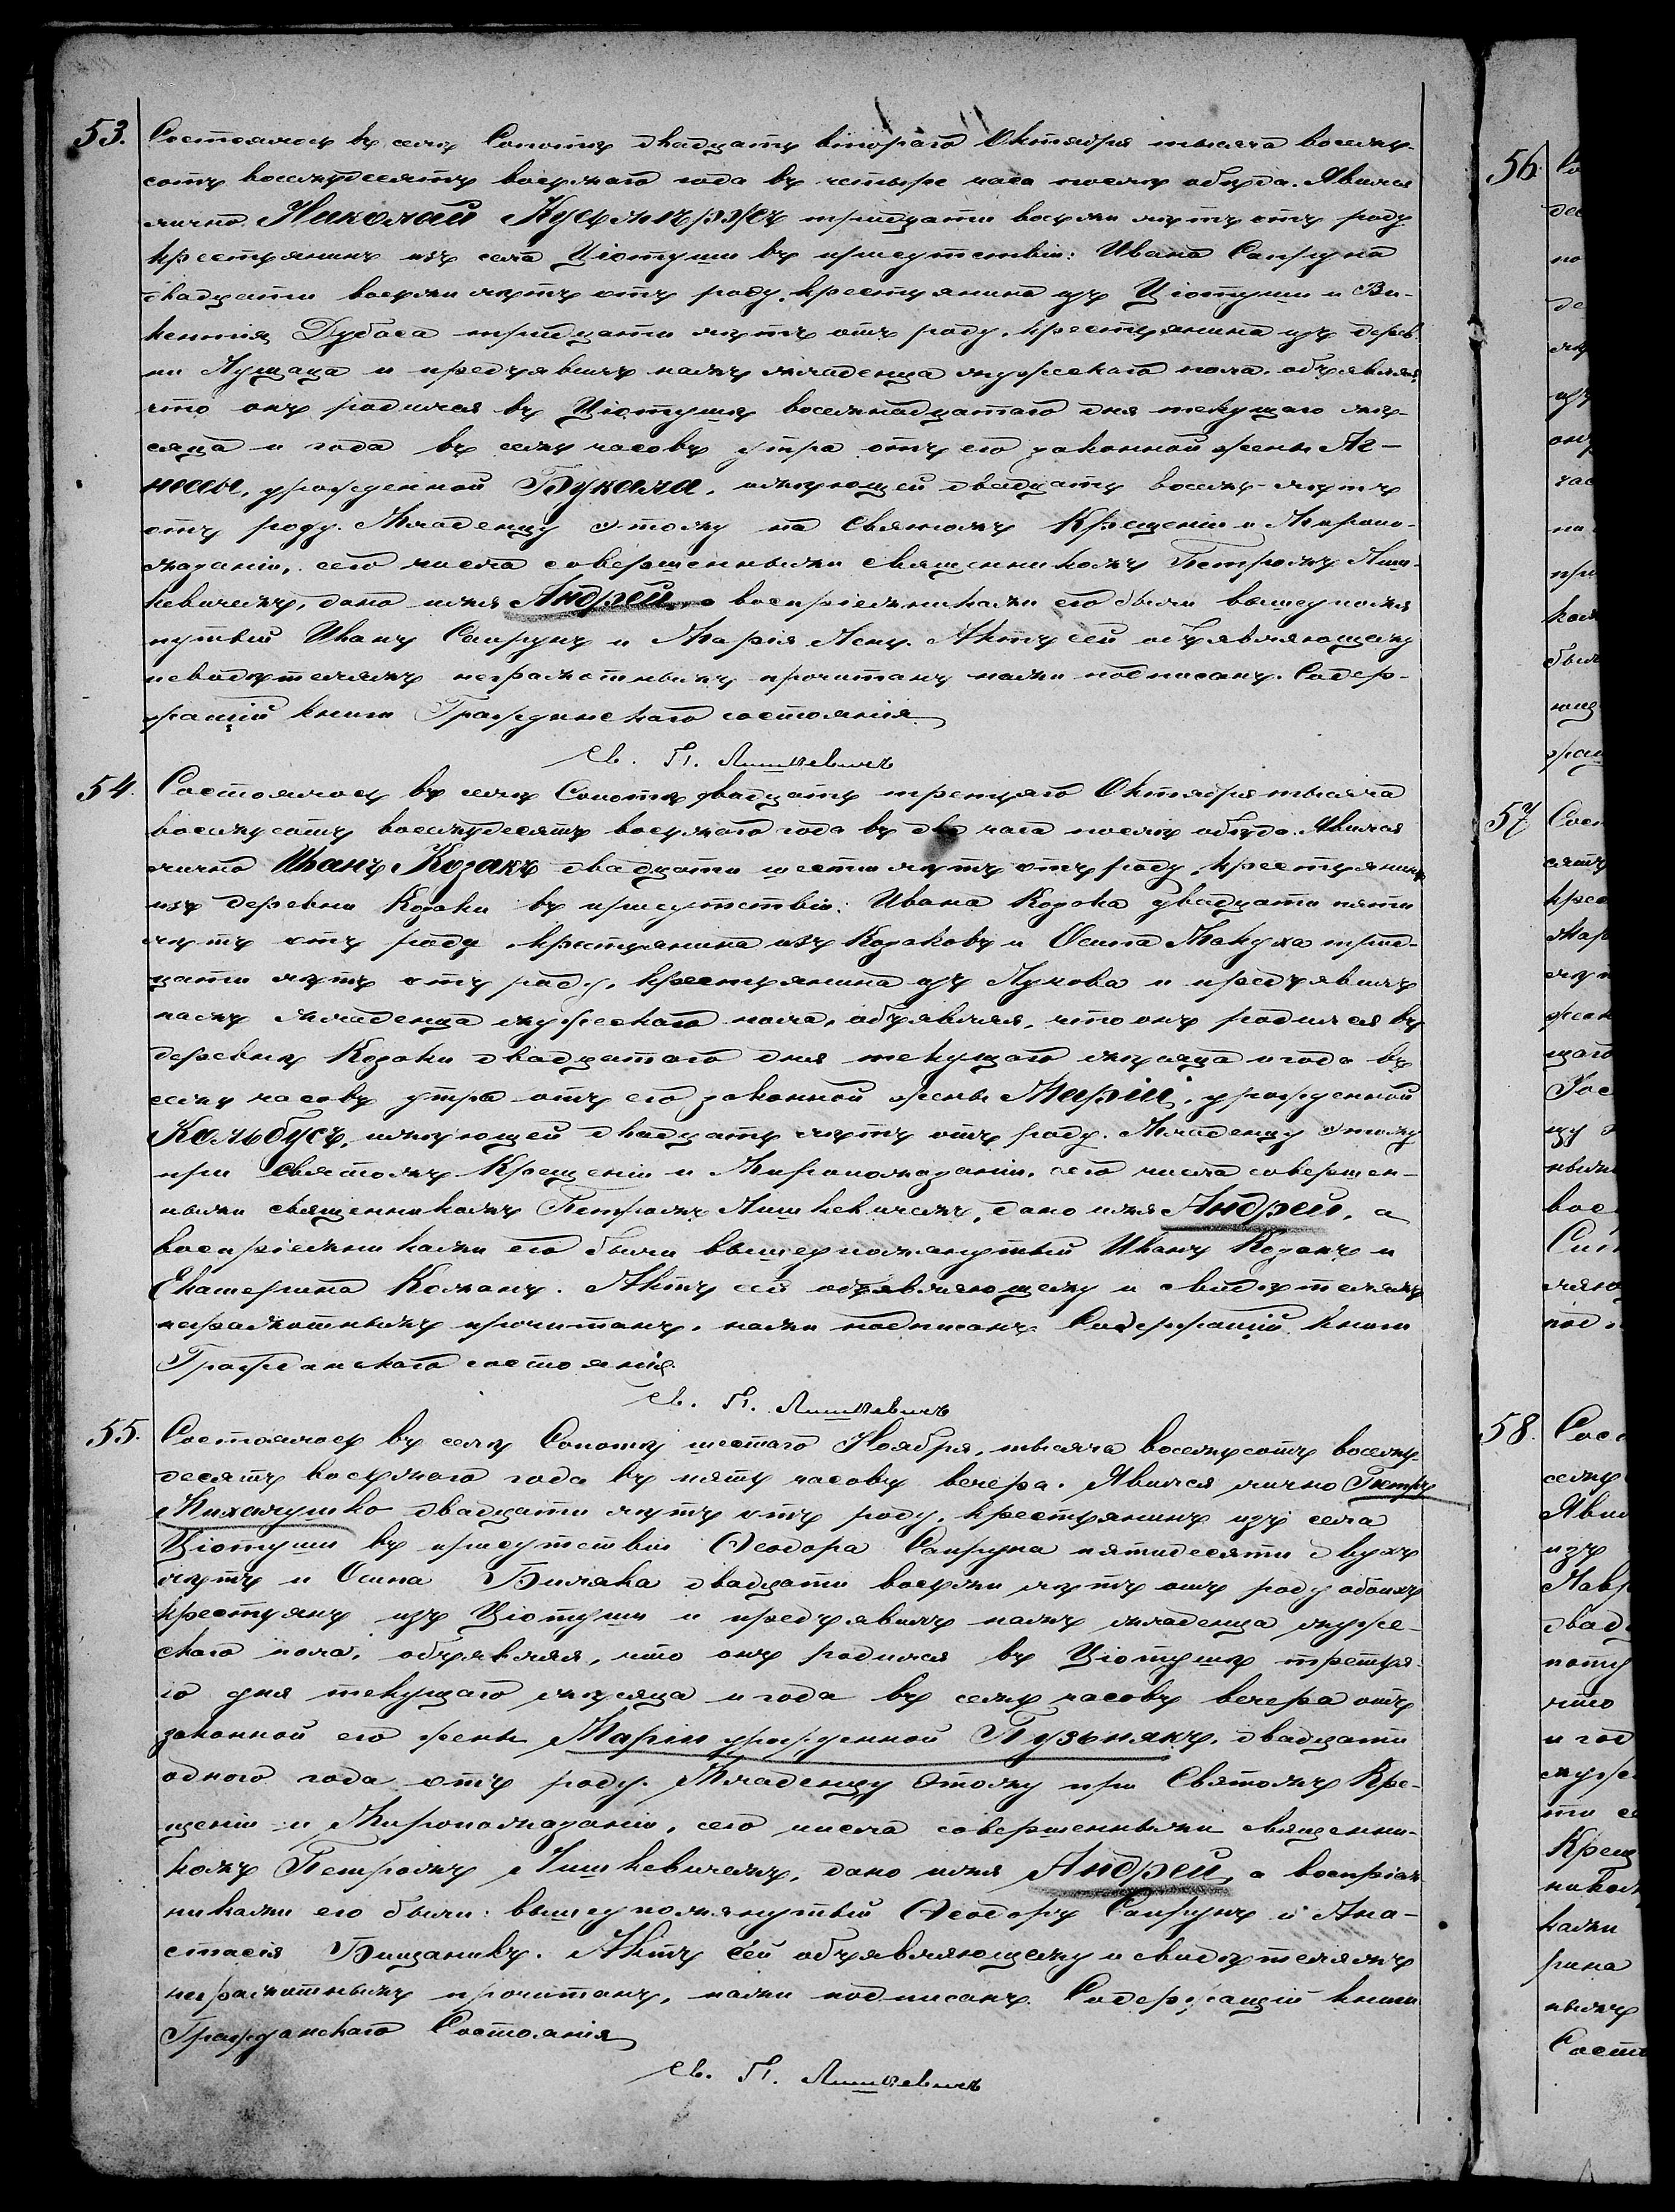 53. Состоялось въ селѣ Сопотѣ двадцать втораго Октября тысяча восемь-
сотъ восемьдесятъ восьмаго года въ четыре часа послѣ обѣда. Явился
лично Николай тридцати восьми лѣтъ отъ роду
крестьянинъ изъ села Ціотуши въ присутствіи: Ивана Сапруна
двадцати восьми лѣтъ отъ роду, крестьянина изъ Ціотуши и Ви-
кентія Дубаса тридцати лѣтъ отъ роду, крестьянина изъ дерев-
ни и предъявилъ намъ младенца мужескаго пола, объявляя,
что онъ родился въ Ціотушѣ восемнадцатаго дня текущаго мѣ-
сяца и года въ семь часовъ утра отъ его законной жены Аг-
несы, урожденной Букала, имѣющей двадцать восемь лѣтъ
отъ роду. Младенцу этому на Святомъ Крещеніи и Миропо-
мазаніи, сего числа совершенными священникомъ Петромъ Лиш-
кевичемъ, дано имя Андрей, а воспріемниками его были вышеупомя-
нутый Иванъ Сапрунъ и Марія. Актъ сей объявляющему
свидѣтелямъ неграмотнымъ прочитанъ нами подписанъ. Содер-
жащій книги Гражданскаго состоянія
Св. П. Лишкевичъ
54. Состоялось въ селѣ Сопотѣ двадцать третьяго Октября тысяча
восемьсотъ восемьдесятъ восьмаго года въ два часа послѣ обѣда. Явился
лично Иванъ Козакъ двадцати шести лѣтъ отъ роду, крестьянинъ
изъ деревни Козаки въ присутствіи: Ивана Козака двадцати пяти
лѣтъ отъ роду крестьянина изъ Козаковъ и Осипа Макуха трид-
цати лѣтъ отъ роду, крестьянина изъ Лукова и предъявилъ
намъ младенца мужескаго пола, объявляя, что онъ родился въ
деревнѣ Козаки двадцатаго дня текущаго мѣсяца и года въ
семь часовъ утра отъ его законной жены Маріи, урожденной
Кольбусъ, имѣющей двадцать лѣтъ отъ роду. Младенцу этому
при Святомъ Крещеніи и Миропомазаніи, сего числа совершен-
ными священникомъ Петромъ Лишкевичемъ, дано имя Андрей, а
воспріемниками его были вышеупомянутый Иванъ Козакъ и
Екатерина. Актъ сей объявляющему и свидѣтелямъ
неграмотнымъ прочитанъ, нами подписанъ. Содержащій книги
Гражданскаго состоянія.
Св. П. Лишкевичъ
55. Состоялось въ селѣ Сопотѣ шестаго Ноября, тысяча восемьсотъ восемь-
десятъ восьмаго года въ пять часовъ вечера. Явился лично Петръ
Михалушко двадцати лѣтъ отъ роду, крестьянинъ изъ села
Ціотуши въ присутствіи Ѳеодора Сапруна пятидесяти двухъ
лѣтъ и Осипа Биляка двадцати восьми лѣтъ отъ роду обоихъ
крестьянъ изъ Ціотуши и предъявилъ намъ младенца муже-
скаго пола, объявляя, что онъ родился въ Ціотушѣ третья-
го дня текущаго мѣсяца и года въ семь часовъ вечера отъ
законной его жены Маріи урожденной Пузьнякъ, двадцати
одного года отъ роду. Младенцу этому при Святомъ Кре-
щеніи и Миропомазаніи, сего числа совершенными священни-
комъ Петромъ Лишкевичемъ, дано имя Андрей, а воспріем-
никами его были: вышеупомянутый Ѳеодоръ Сапрунъ и Ана-
стасія Бищанивъ. Актъ сей объявляющему и свидѣтелямъ
неграмотнымъ прочитанъ, нами подписанъ. Содержащій книги
Гражданскаго Состоянія
Св. П. Лишкевичъ
56.
57
58.